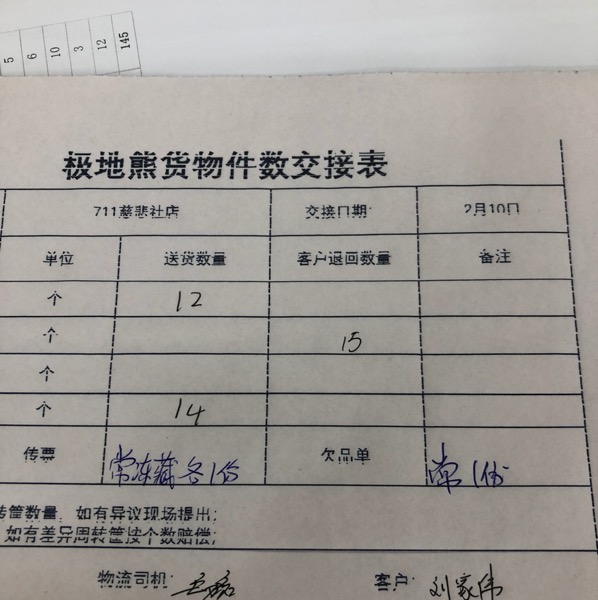 5 6 10 3 12 145
极地熊货物件数交接表
711慈悲社店 交接日期: 2月10日
单位 送货数量 客户退回数量 备注
个 12
个 15
个
个 14
传票 常冻藏各1份 欠品单 常1份
转筐数量，如有异议现场提出;
如有差异周转筐按个数赔偿;
物流司机: 客户: 刘家伟